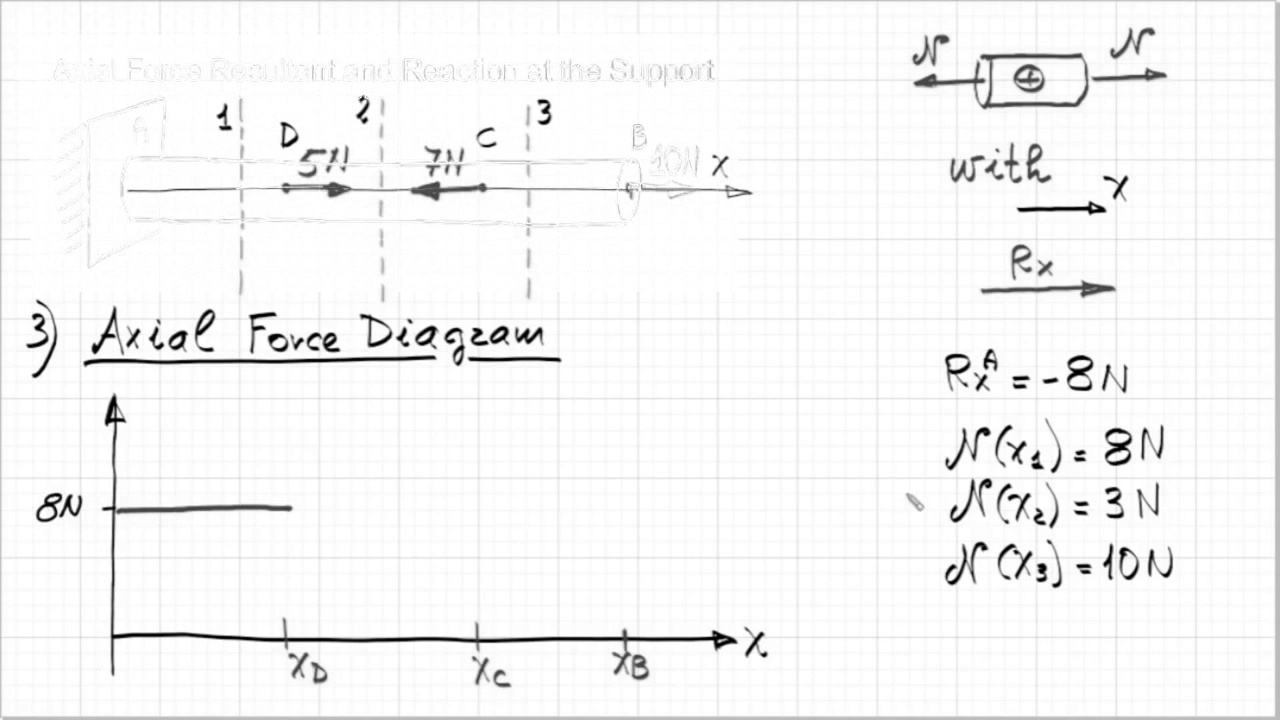 Axial Force Resultant and Reaction at the Support
1 2 3
A D C B
5N 7N 10N X
N N
+
with
X
Rx
3) Axial Force Diagram
8N
xD xC xB X
RxA = -8N
N(x1) = 8N
N(x2) = 3N
N(x3) = 10N